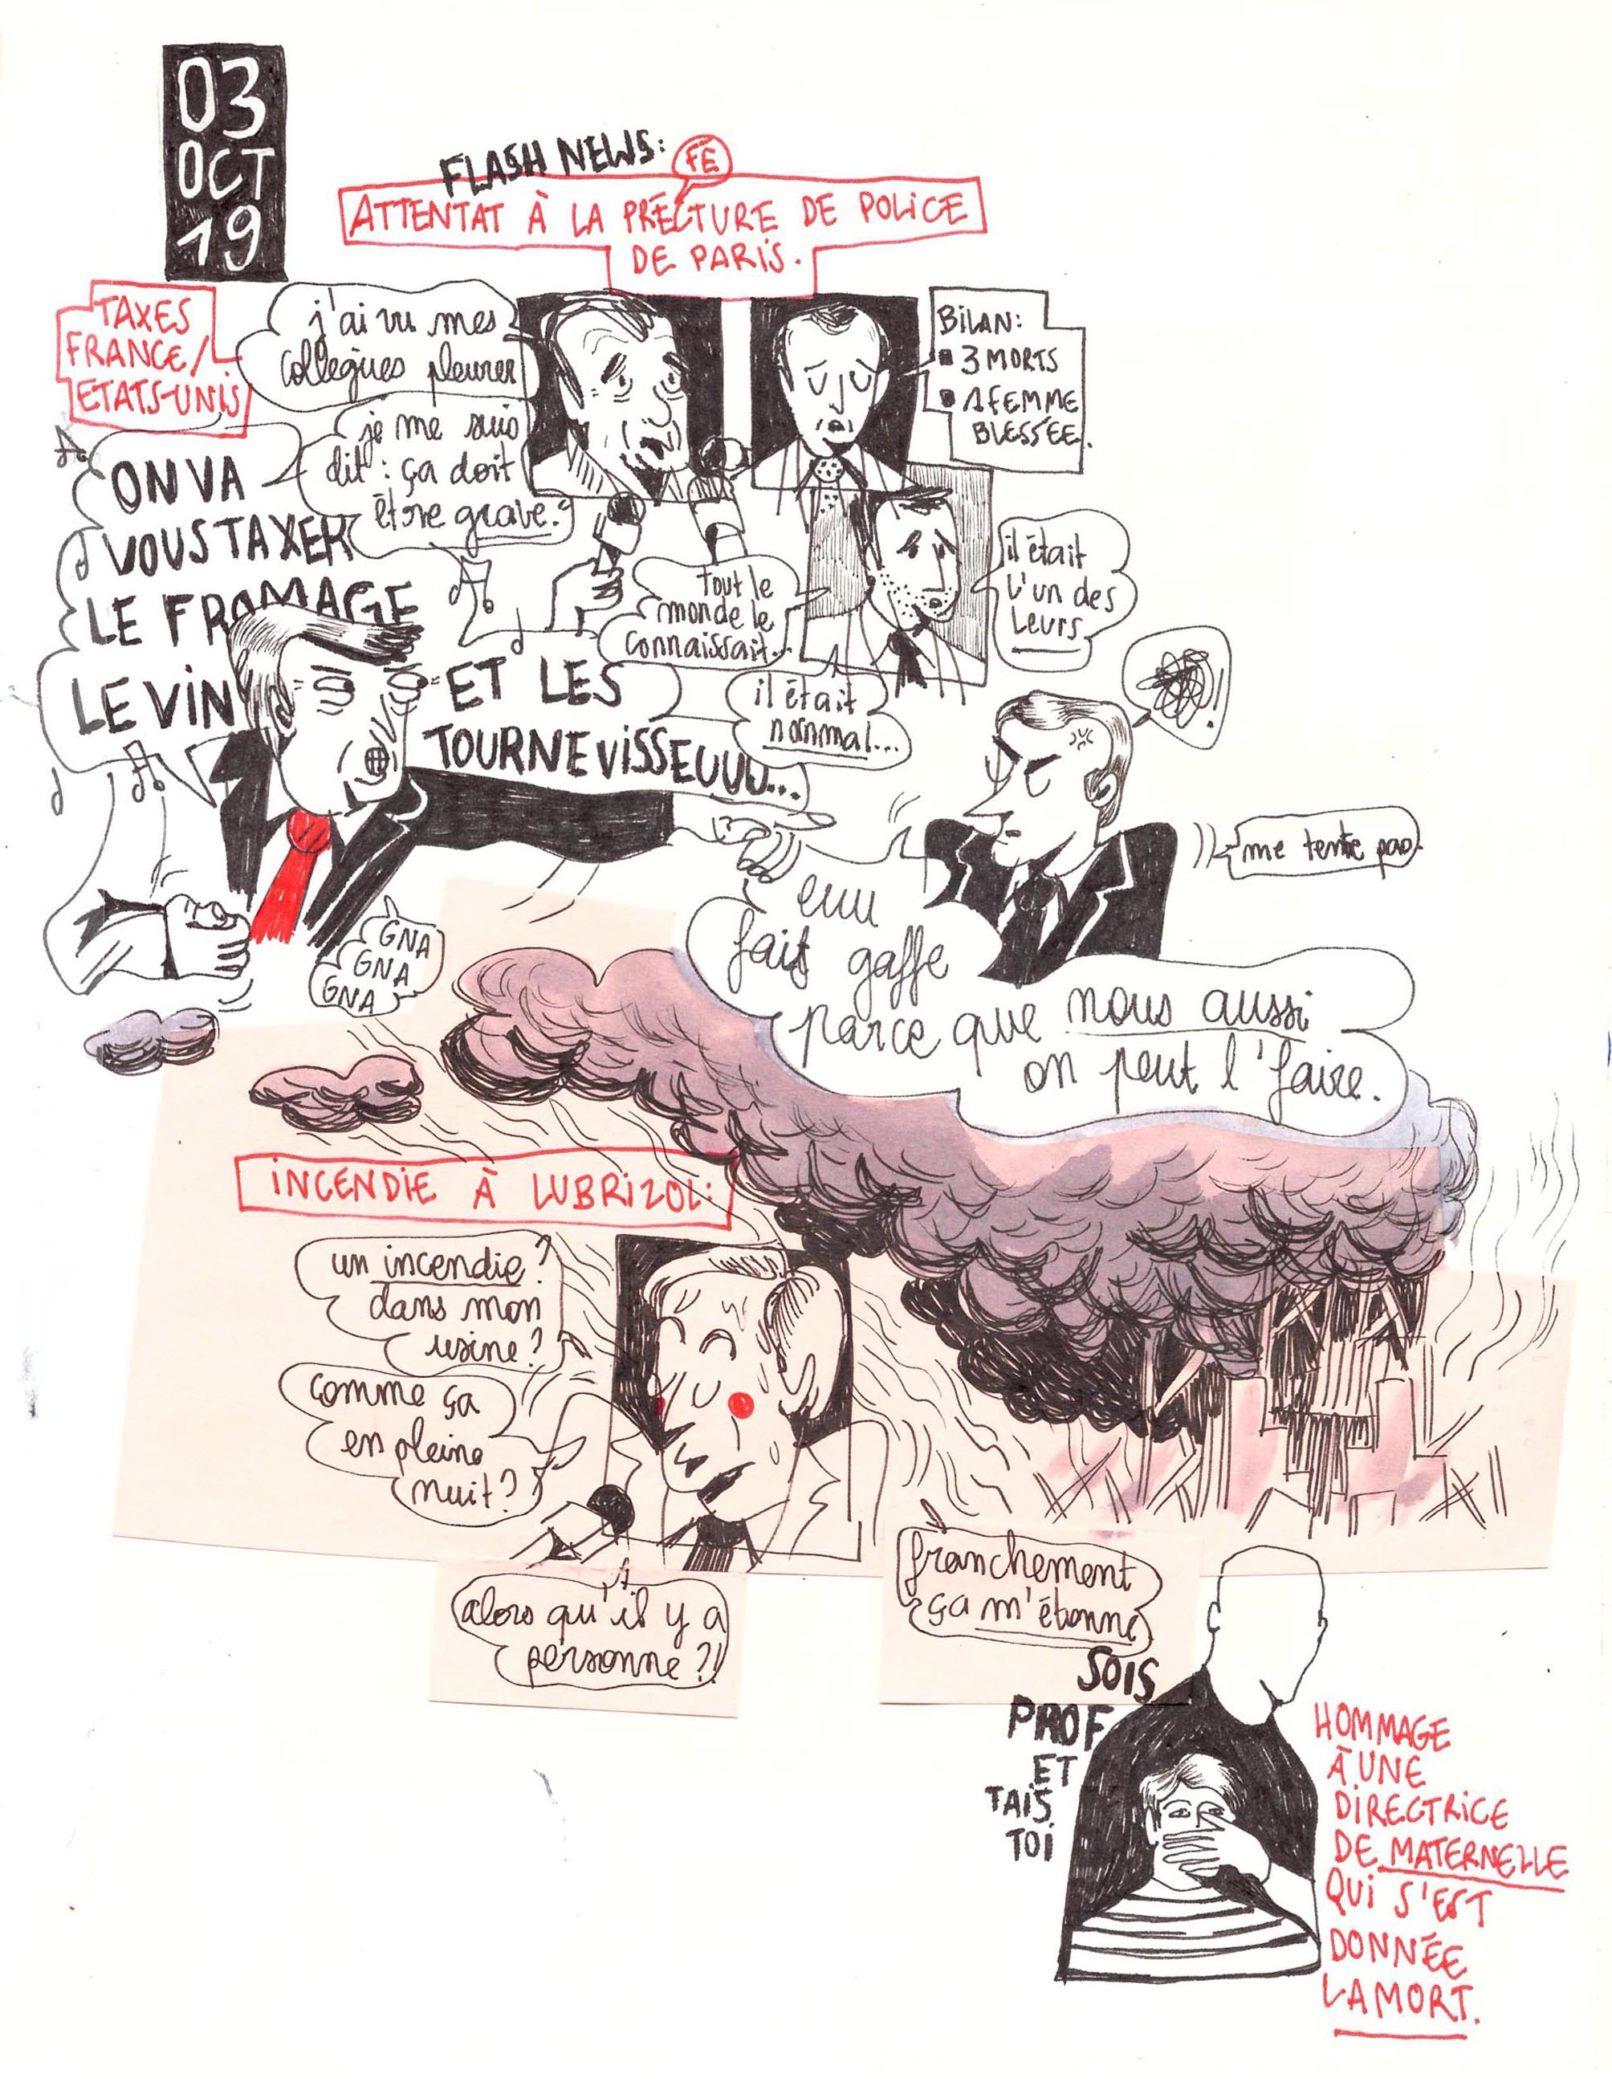 03
OCT
19
FLASH NEWS:
FE
ATTENTAT À LA PRÉCTURE DE POLICE
DE PARIS.
TAXES
FRANCE/
ETATS-UNIS
j'ai vu mes
collègues pleurer
je me suis
dit : ça doit
être grave.
BILAN:
▪ 3 MORTS
▪ 1 FEMME
BLESSÉE.
tout le
monde le
connaissait...
il était
l'un des
leurs
il était
normal...
ON VA
VOUS TAXER
LE FROMAGE
LE VIN
ET LES
TOURNEVISSEUUU...
GNA
GNA
GNA
!
me tente pas.
euu
fais gaffe
parce que nous aussi
on peut l'faire.
INCENDIE À LUBRIZOL:
un incendie?
dans mon
usine?
comme ça
en pleine
nuit?
alors qu'il y a
personne?!
franchement
ça m'étonne
SOIS
PROF
ET
TAIS
TOI
HOMMAGE
À UNE
DIRECTRICE
DE MATERNELLE
QUI S'EST
DONNÉE
LA MORT.